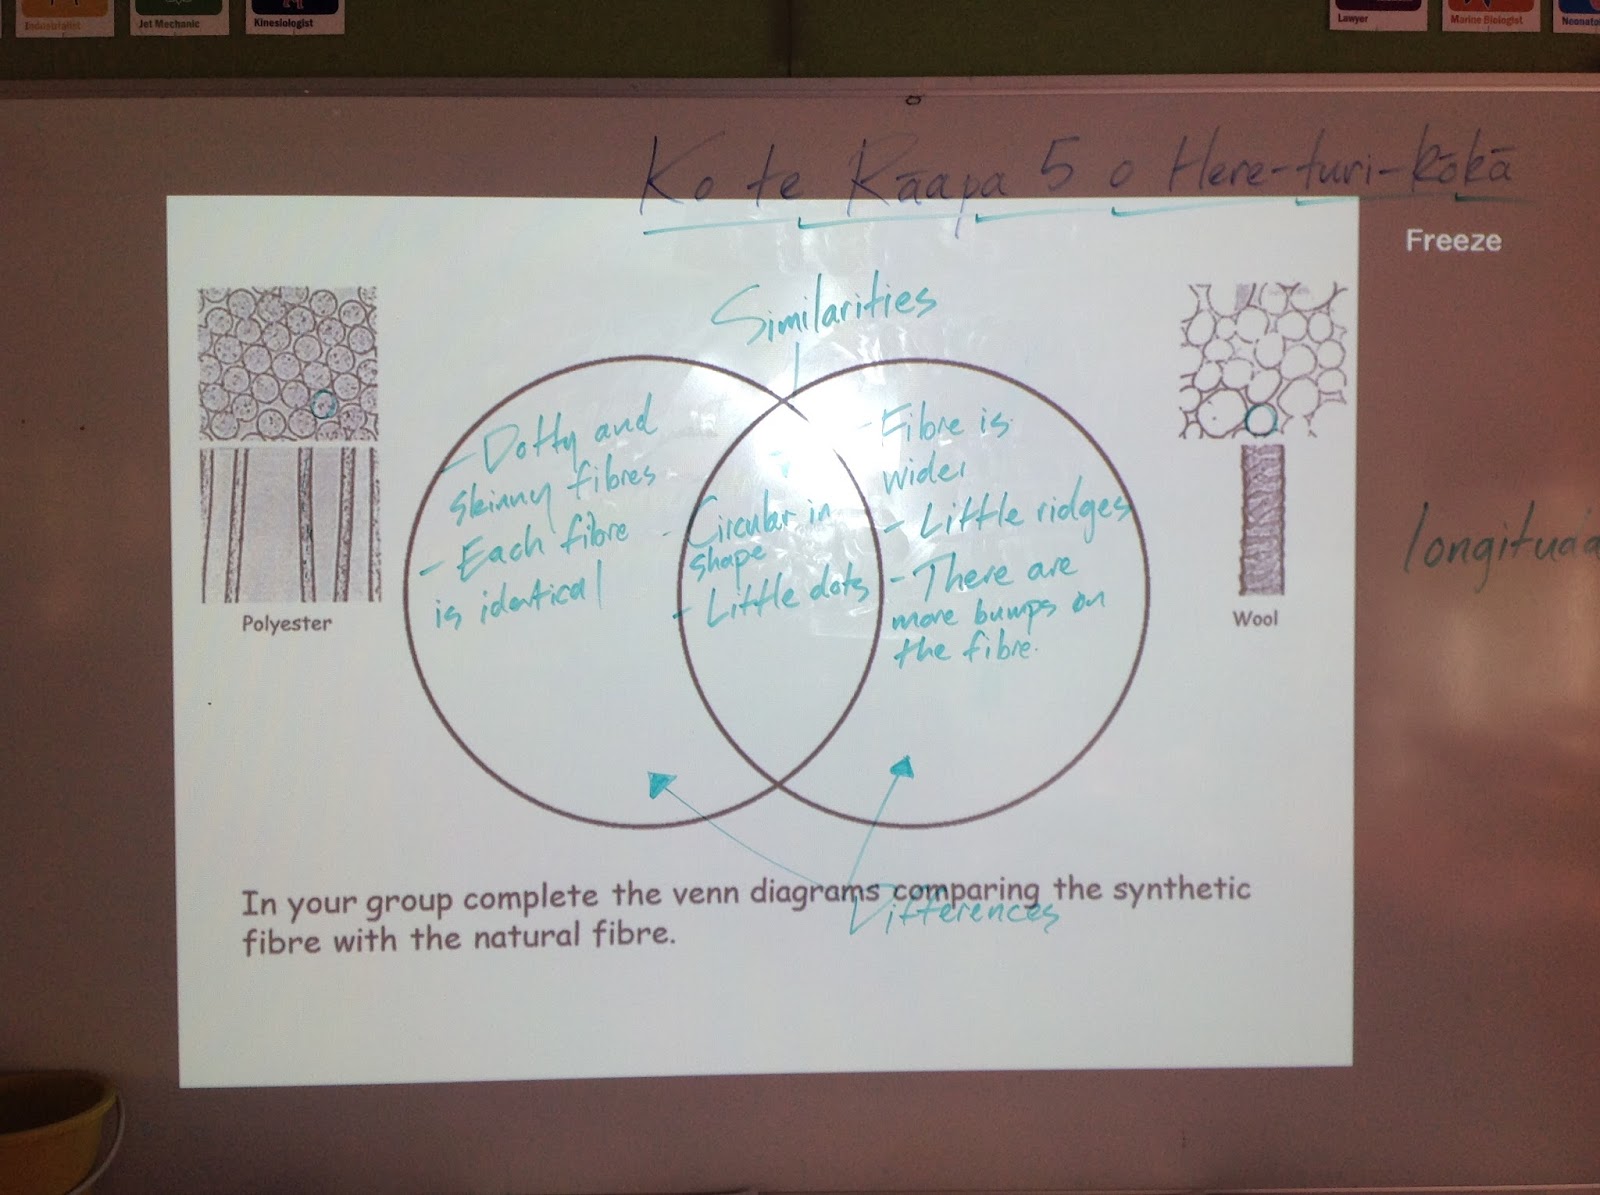 Industrialist
Jet Mechanic
Kinesiologist
Lawyer
Marine Biologist
Ko te Rāapa 5 o Here-turi-kōkā
Freeze
Similarities
- Dotty and
skinny fibres
- Each fibre
is identical
- Circular in
shape
- Little dots
- Fibre is
wider
- Little ridges
- There are
more bumps on
the fibre.
Polyester
Wool
longitud
In your group complete the venn diagrams comparing the synthetic
fibre with the natural fibre.
Differences